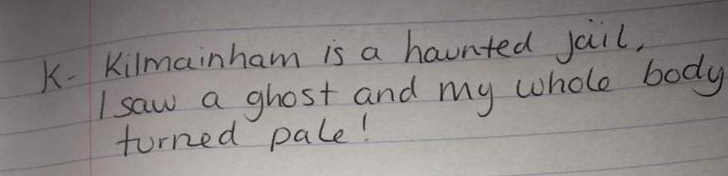 K- Kilmainham is a haunted jail,
I saw a ghost and my whole body
turned pale!